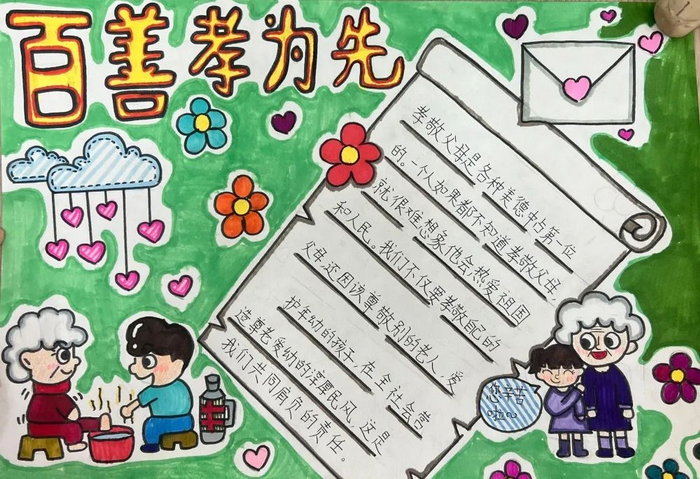 百善孝为先
孝敬父母是各种美德帖第一位
的。一个人如果都不知道孝敬父母,
就很难想象他会热爱祖国
和人民。我们不仅要孝敬自己的
父母还因该尊敬别的老人,爱
护年幼的孩子,在全社会营
造尊老爱幼的淳厚民风,这是
我们共同肩负的责任。
您辛苦
啦~